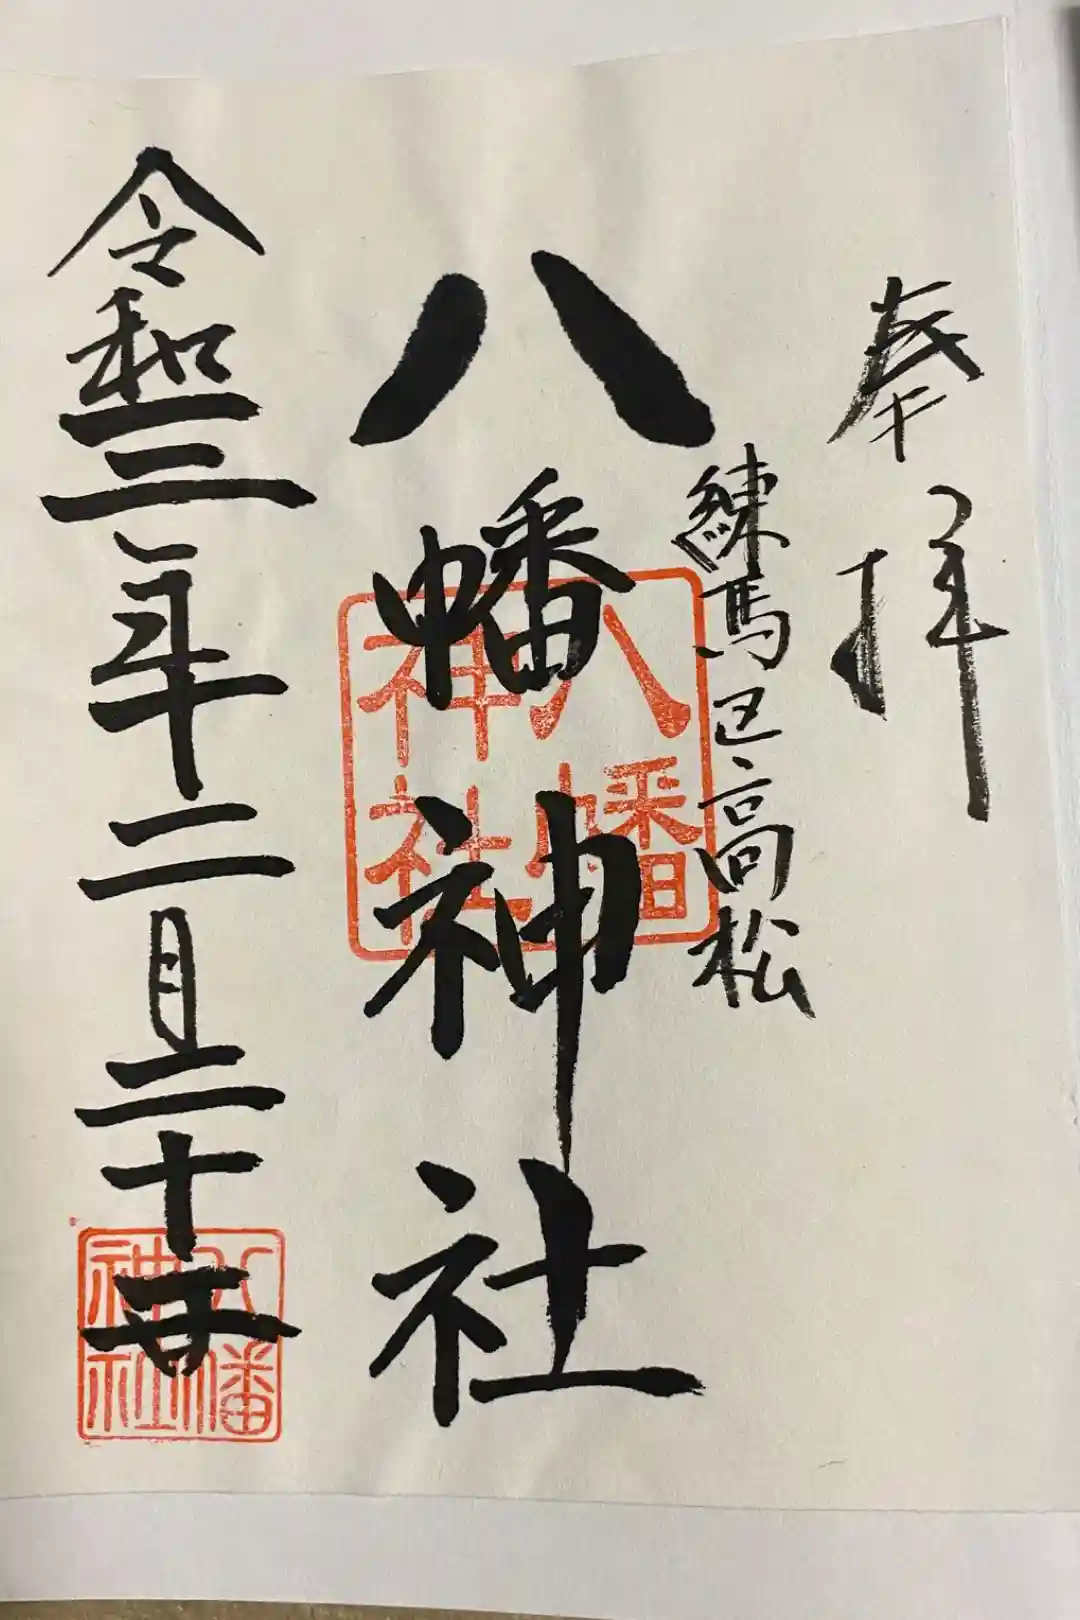 奉拝
練馬区高松
八幡神社
八幡
神社
令和三年二月二十日
八幡
神社